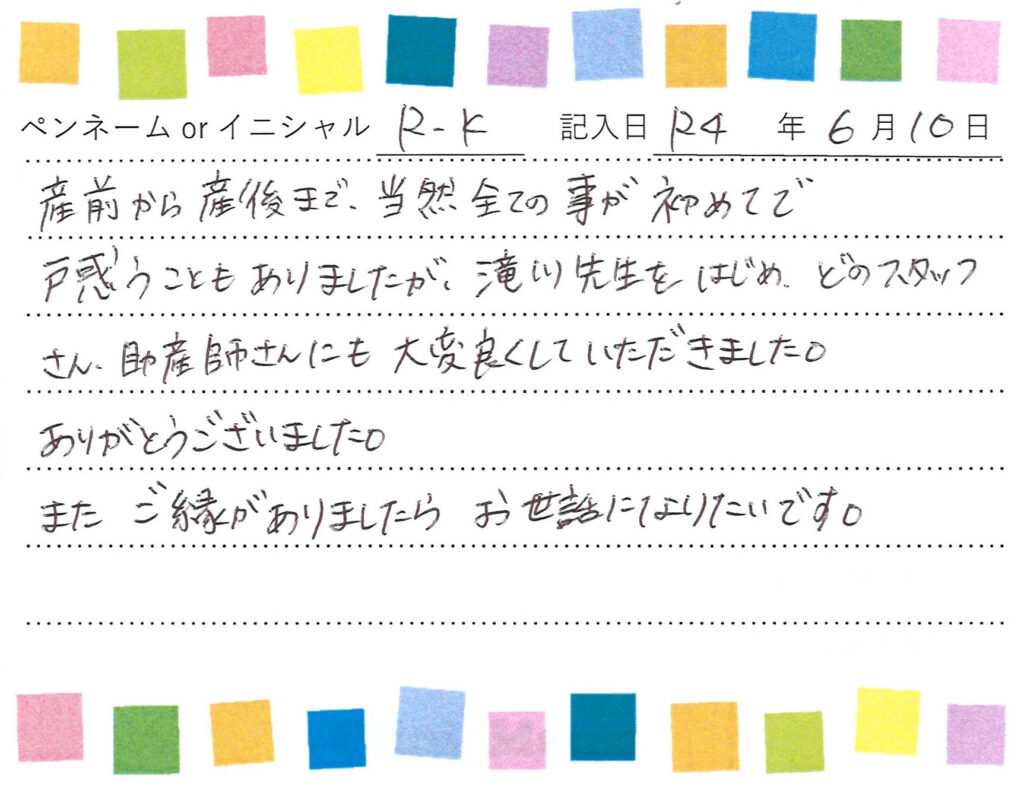 ペンネーム or イニシャル R-K 記入日 R4 年 6 月 10 日
産前から産後まで、当然全ての事が初めてで
戸惑うこともありましたが、滝川先生をはじめ、どのスタッフ
さん、助産師さんにも大変良くしていただきました。
ありがとうございました。
また ご縁がありましたら お世話になりたいです。